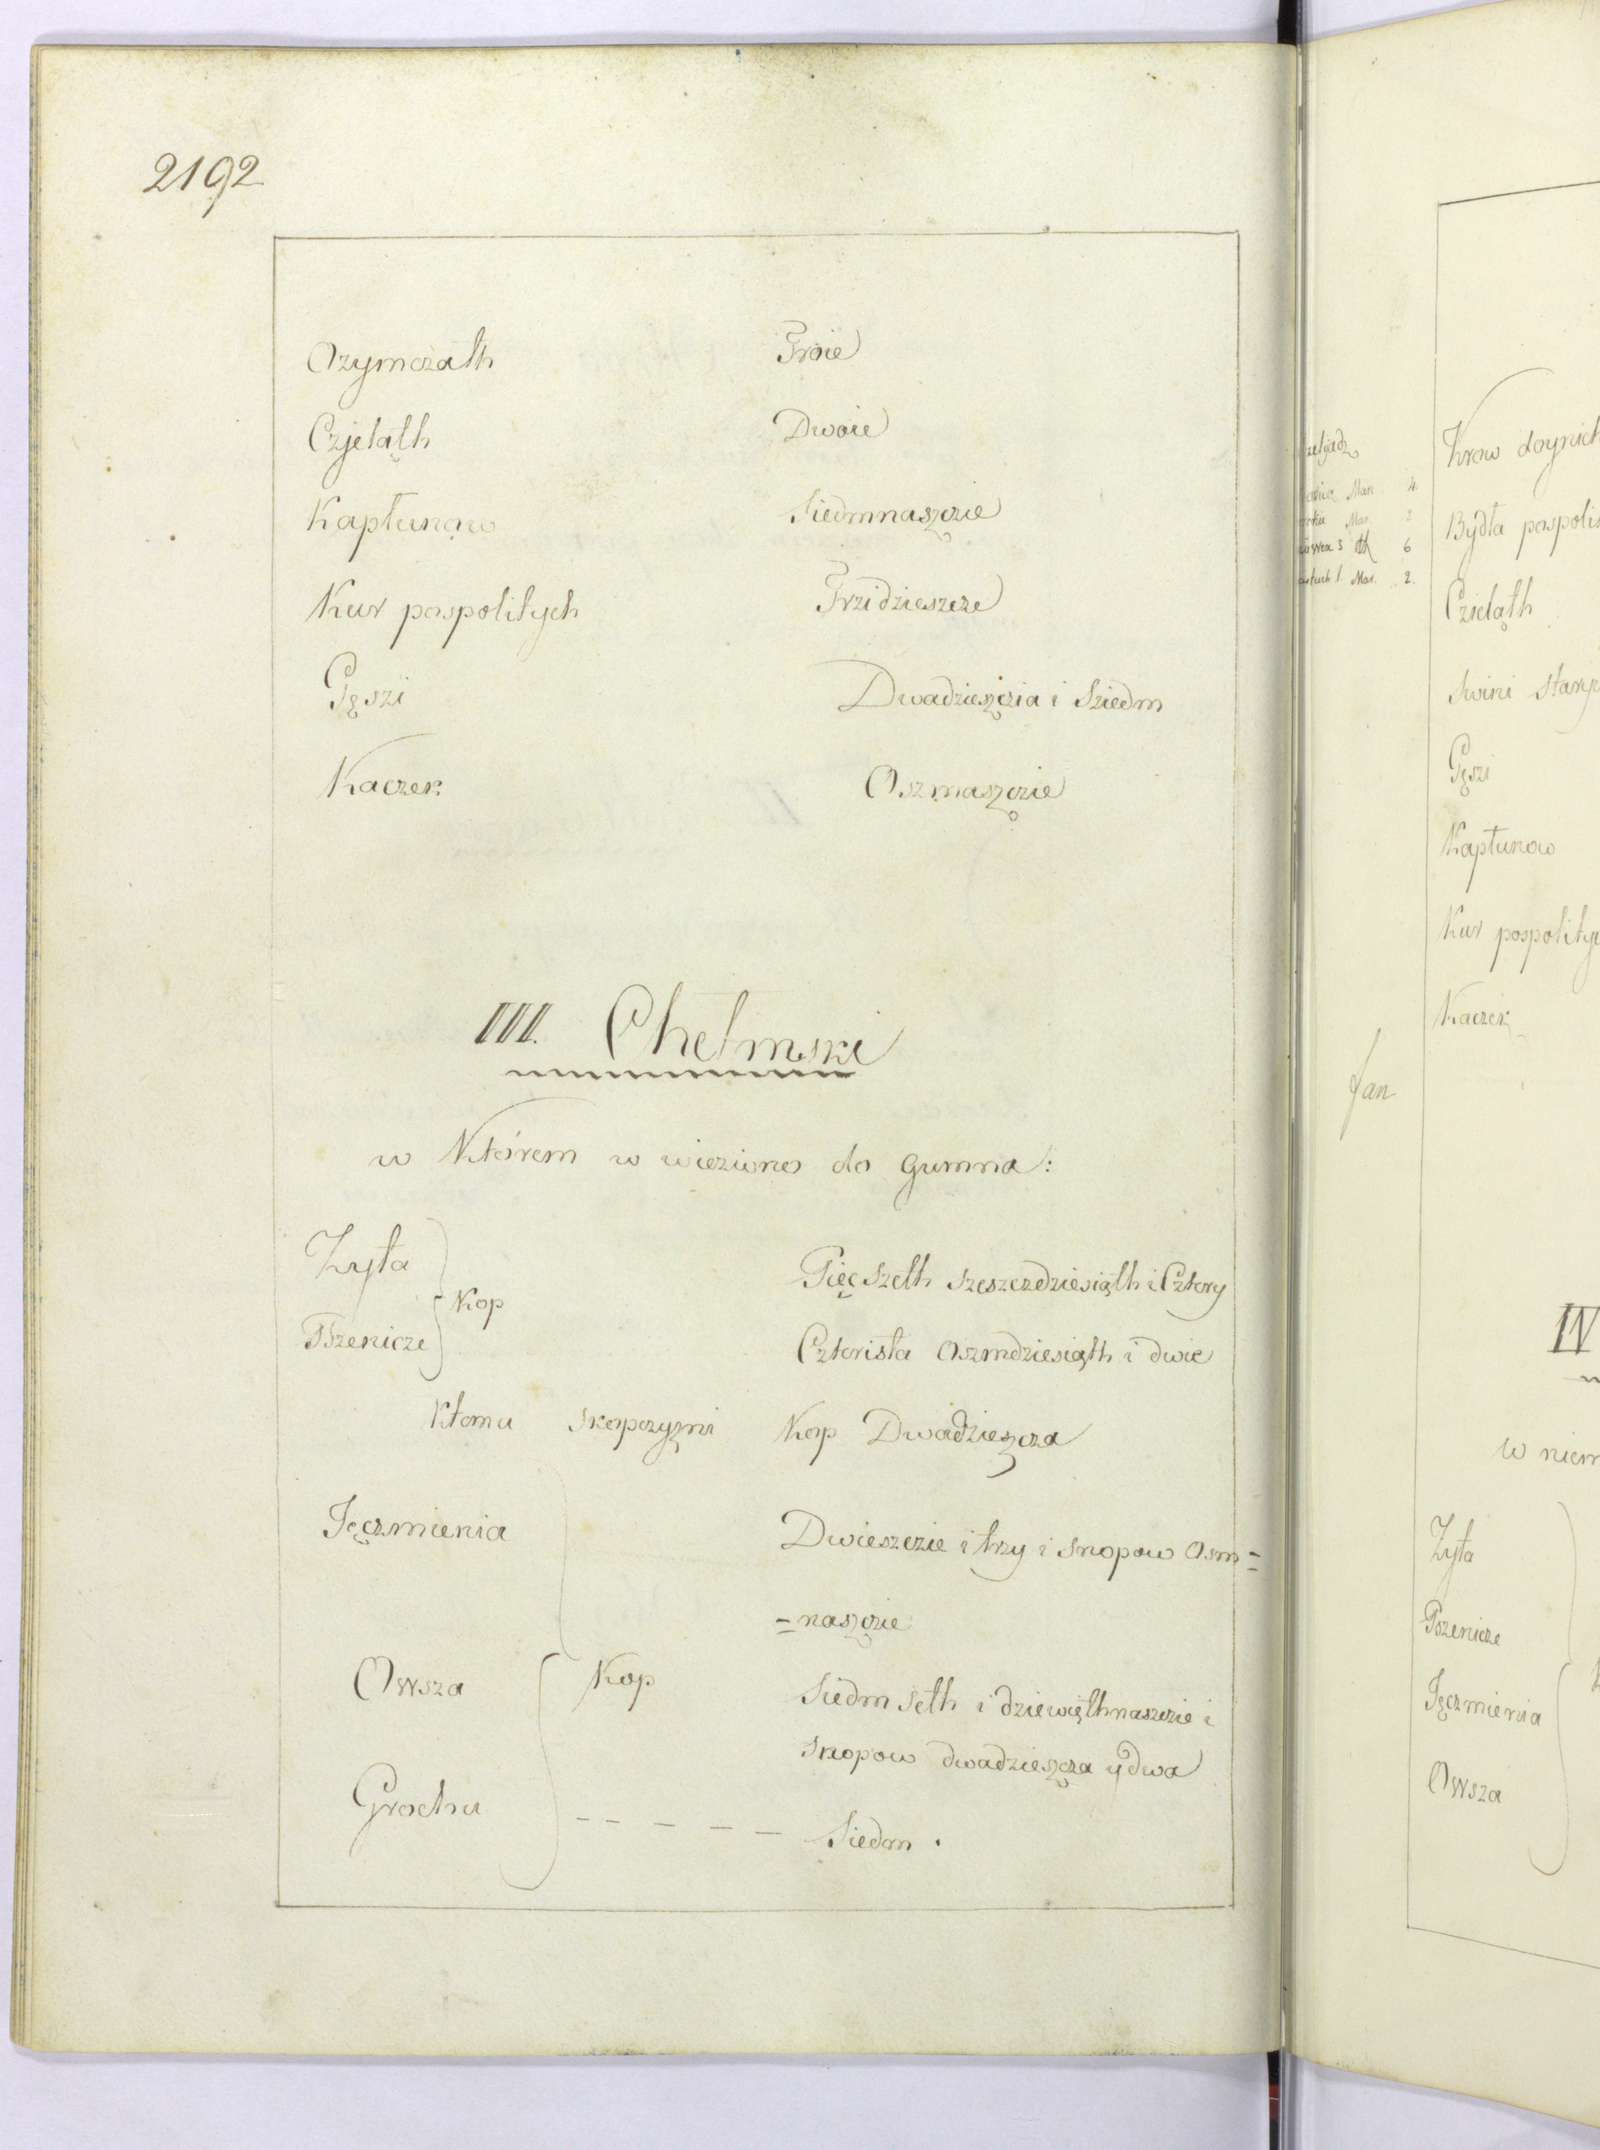 2192
Ozymczath Troie
Czjeląth Dwoie
Kapłunow Siedmnaszczie
Kur pospolitych Trzidzieszcze
Gęszi Dwadzieszczia i Sziedm
Kaczek Oszmaszczie
III. Chełmski
w Którem w wieziono do gumna:
Zyta Pięcszeth szesczdziesiąth i Cztery
Kop
Pszenicze Cztерista oszmdziesiąth i dwie
Ktemu skopczyzni Kop Dwadzieszcza
Jęczmienia Dwieszczie i trzy i snopow osm=
=naszczie
Owsza Kop Siedm seth i dziewięthnaszczie i
snopow dwadzieszcza y dwa
Grochu - - - - - Siedm.
Krow doynich
Mar 4.
Mar. 2
Bydła pospoli
6
1. Mar. 2.
Czieląth
Swini star
Gęszi
Kapłunow
Kur pospolity
Kaczek
Jan
IV
w niem
Zyta
Pszenicze
Jęczmienia
Owsza